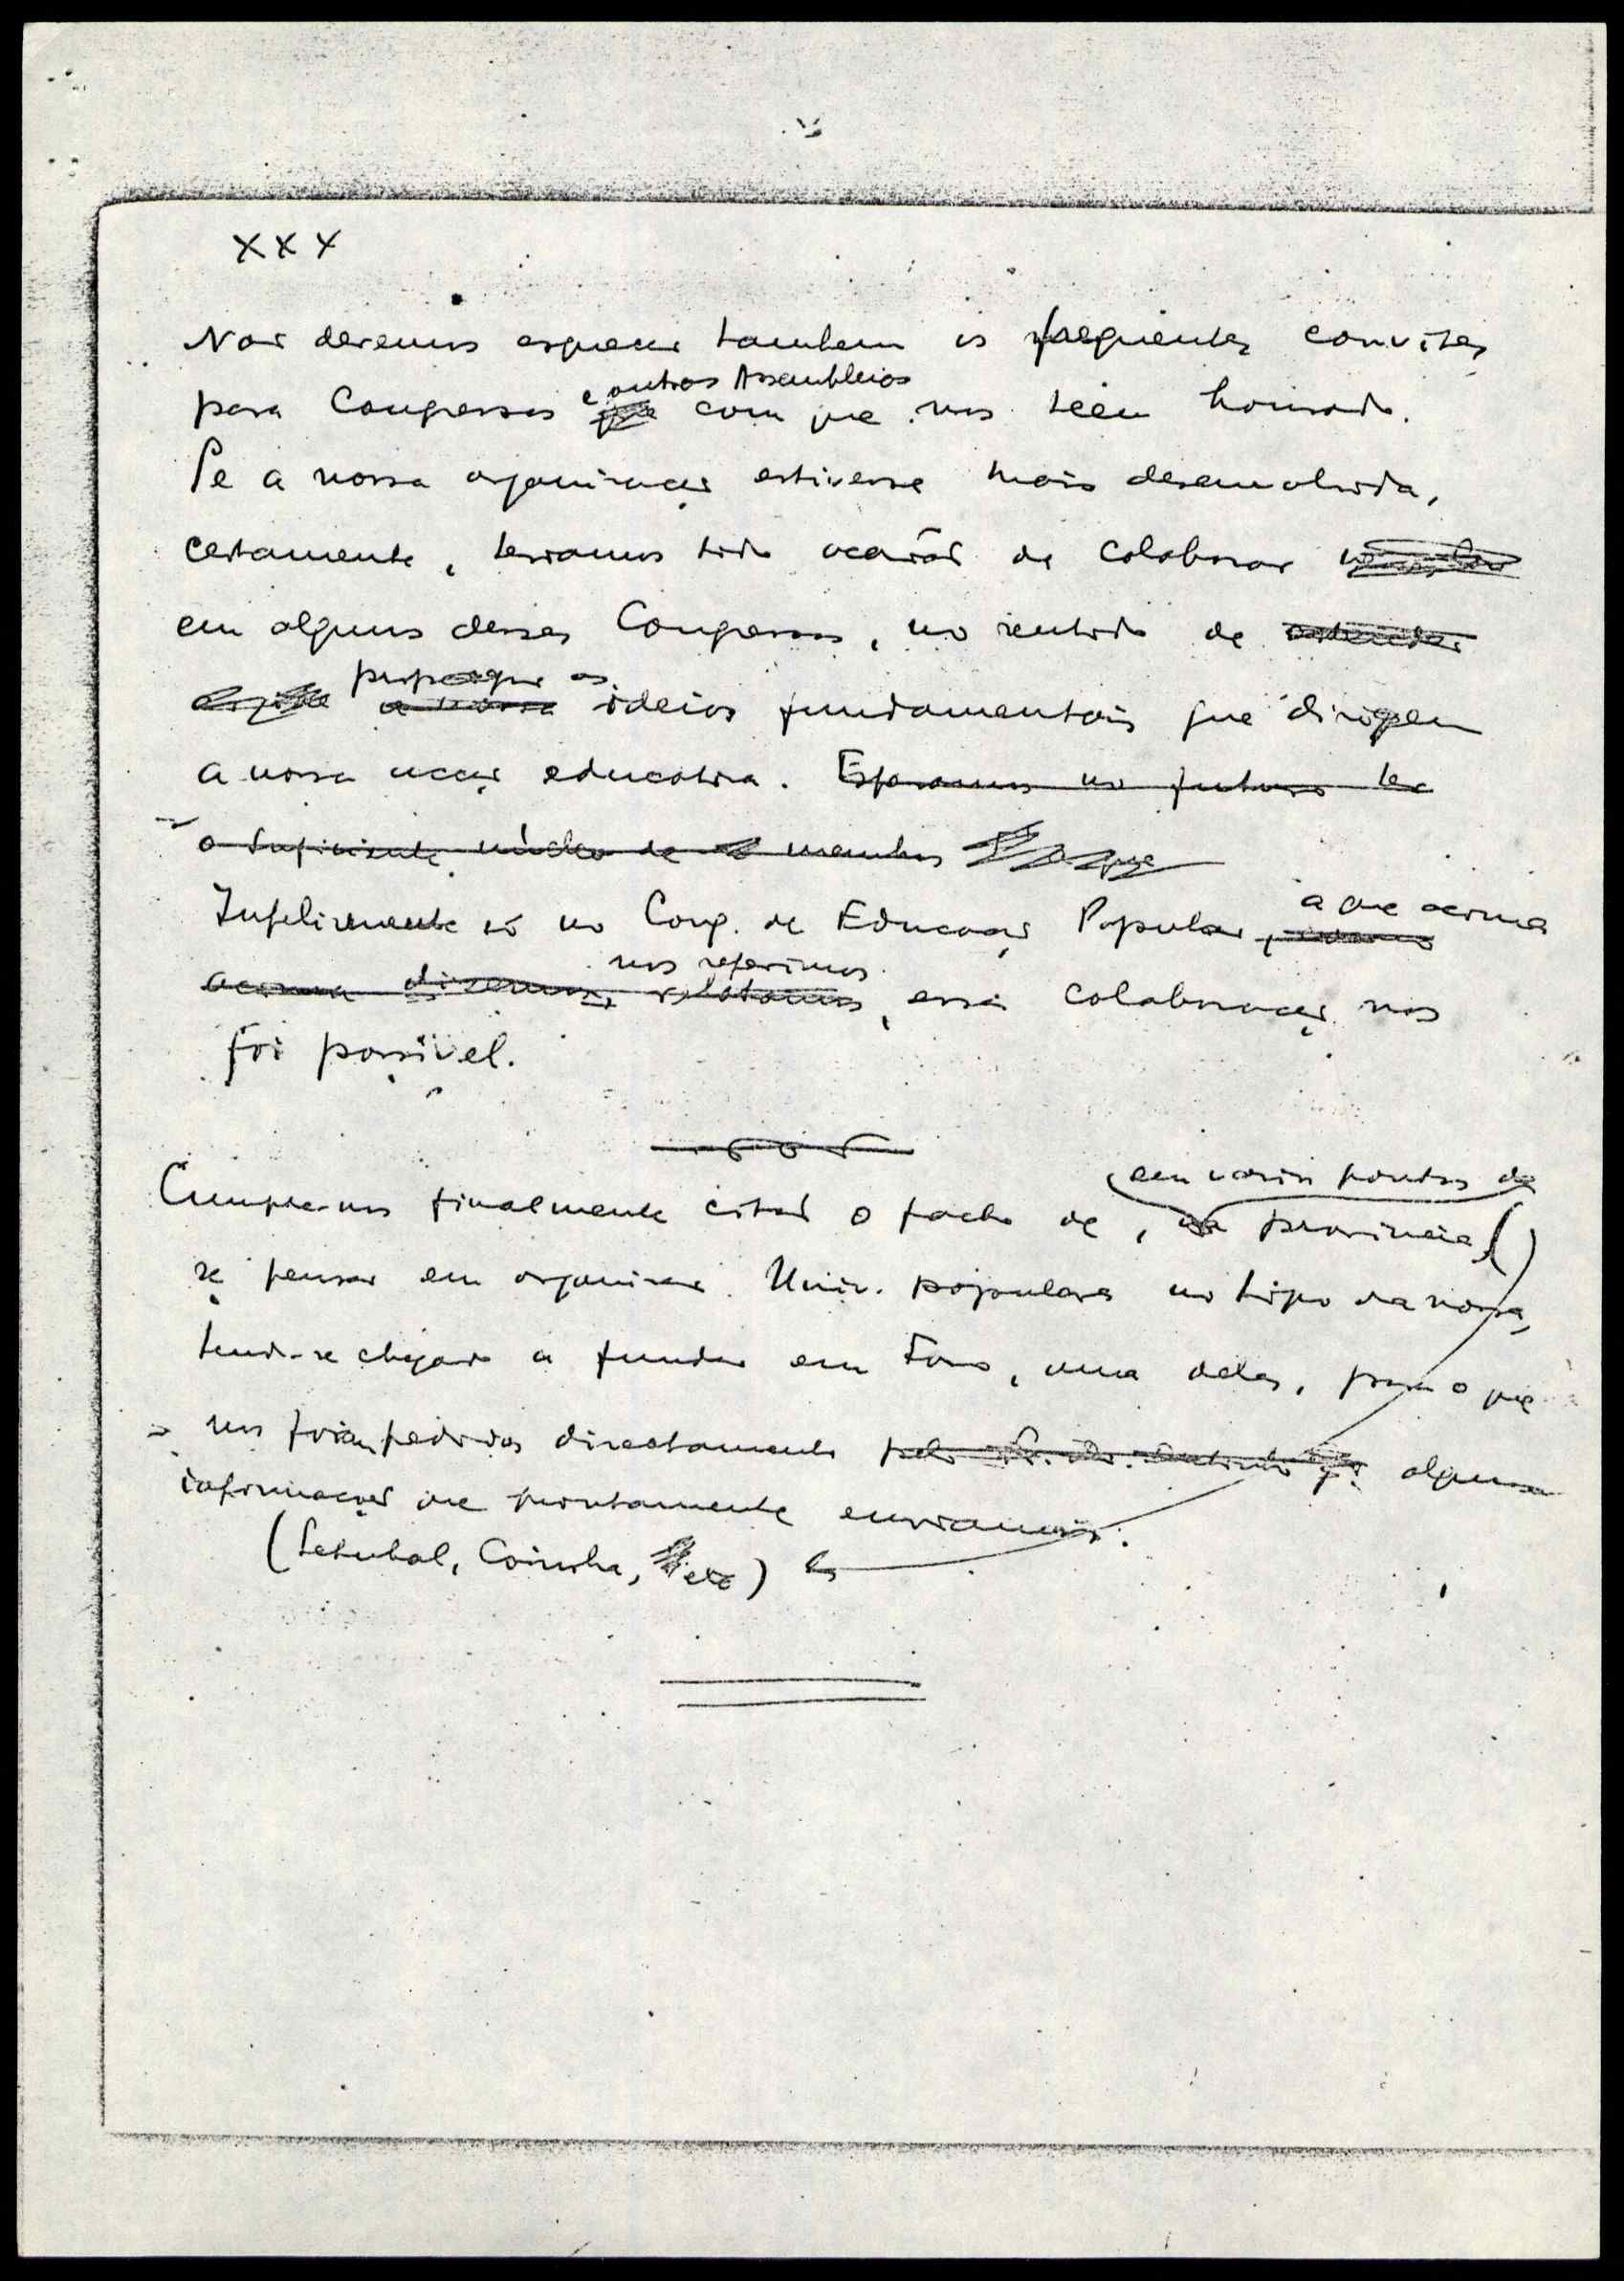 XXX
Não devemos esquecer tambem os frequentes convites
e outras Assembleias
para Congressos que com que nos teem honrado.
Se a nossa organização estivesse mais desenvolvida,
certamente, teriamos tido ocasião de colaborar
em alguns desses Congressos, no sentido de estender
propagar as
a nossa ideias fundamentais que dirigem
a nossa acção educativa. Esperamos no futuro ter
o suficiente núcleo de membros
Infelizmente só no Cong. de Educação Popular, a que acima
nos referimos
acima dissemos, relatamos, essa colaboração nos
foi possivel.
em varios pontos da
Cumpre-nos finalmente citar o facto de, na provincia ()
se pensar em organisar Univ. populares no tipo da nossa,
tendo-se chegado a fundar em Faro, uma delas, para o que
nos foram pedidas directamente pelo algumas
informações que prontamente enviamos.
(Setubal, Coimbra, etc)